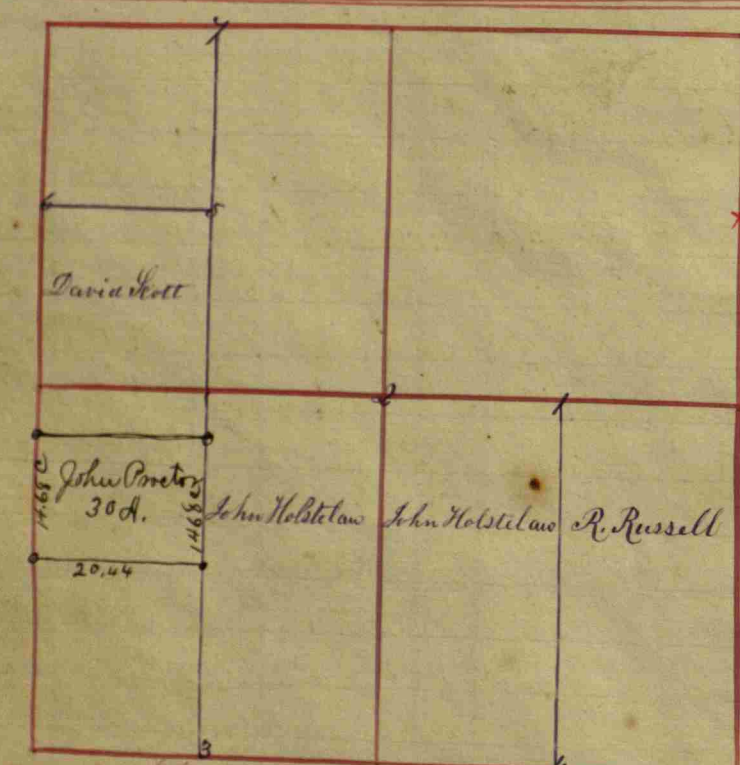 7
6
5
David Scott
2
1
14.68 C
John Proctor
30 A.
1468 C
20.44
John Holstelaw
John Holstelaw
R. Russell
3